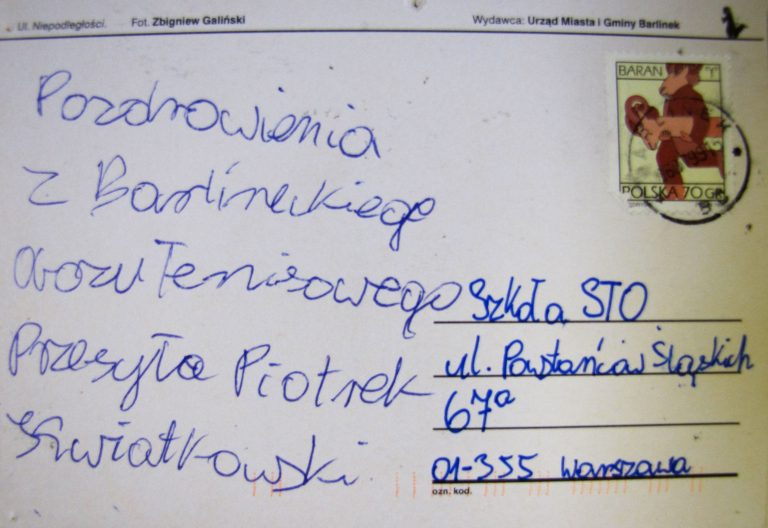 Ul. Niepodległości. Fot. Zbigniew Galiński Wydawca: Urząd Miasta i Gminy Barlinek
BARAN
POLSKA 70GR
Pozdrowienia
z Barlineckiego
obozu Tenisowego
Przesyła Piotrek
Kwiatkowski
Szkoła STO
ul. Powstańców Śląskich
67a
01-355 Warszawa
ozn. kod.